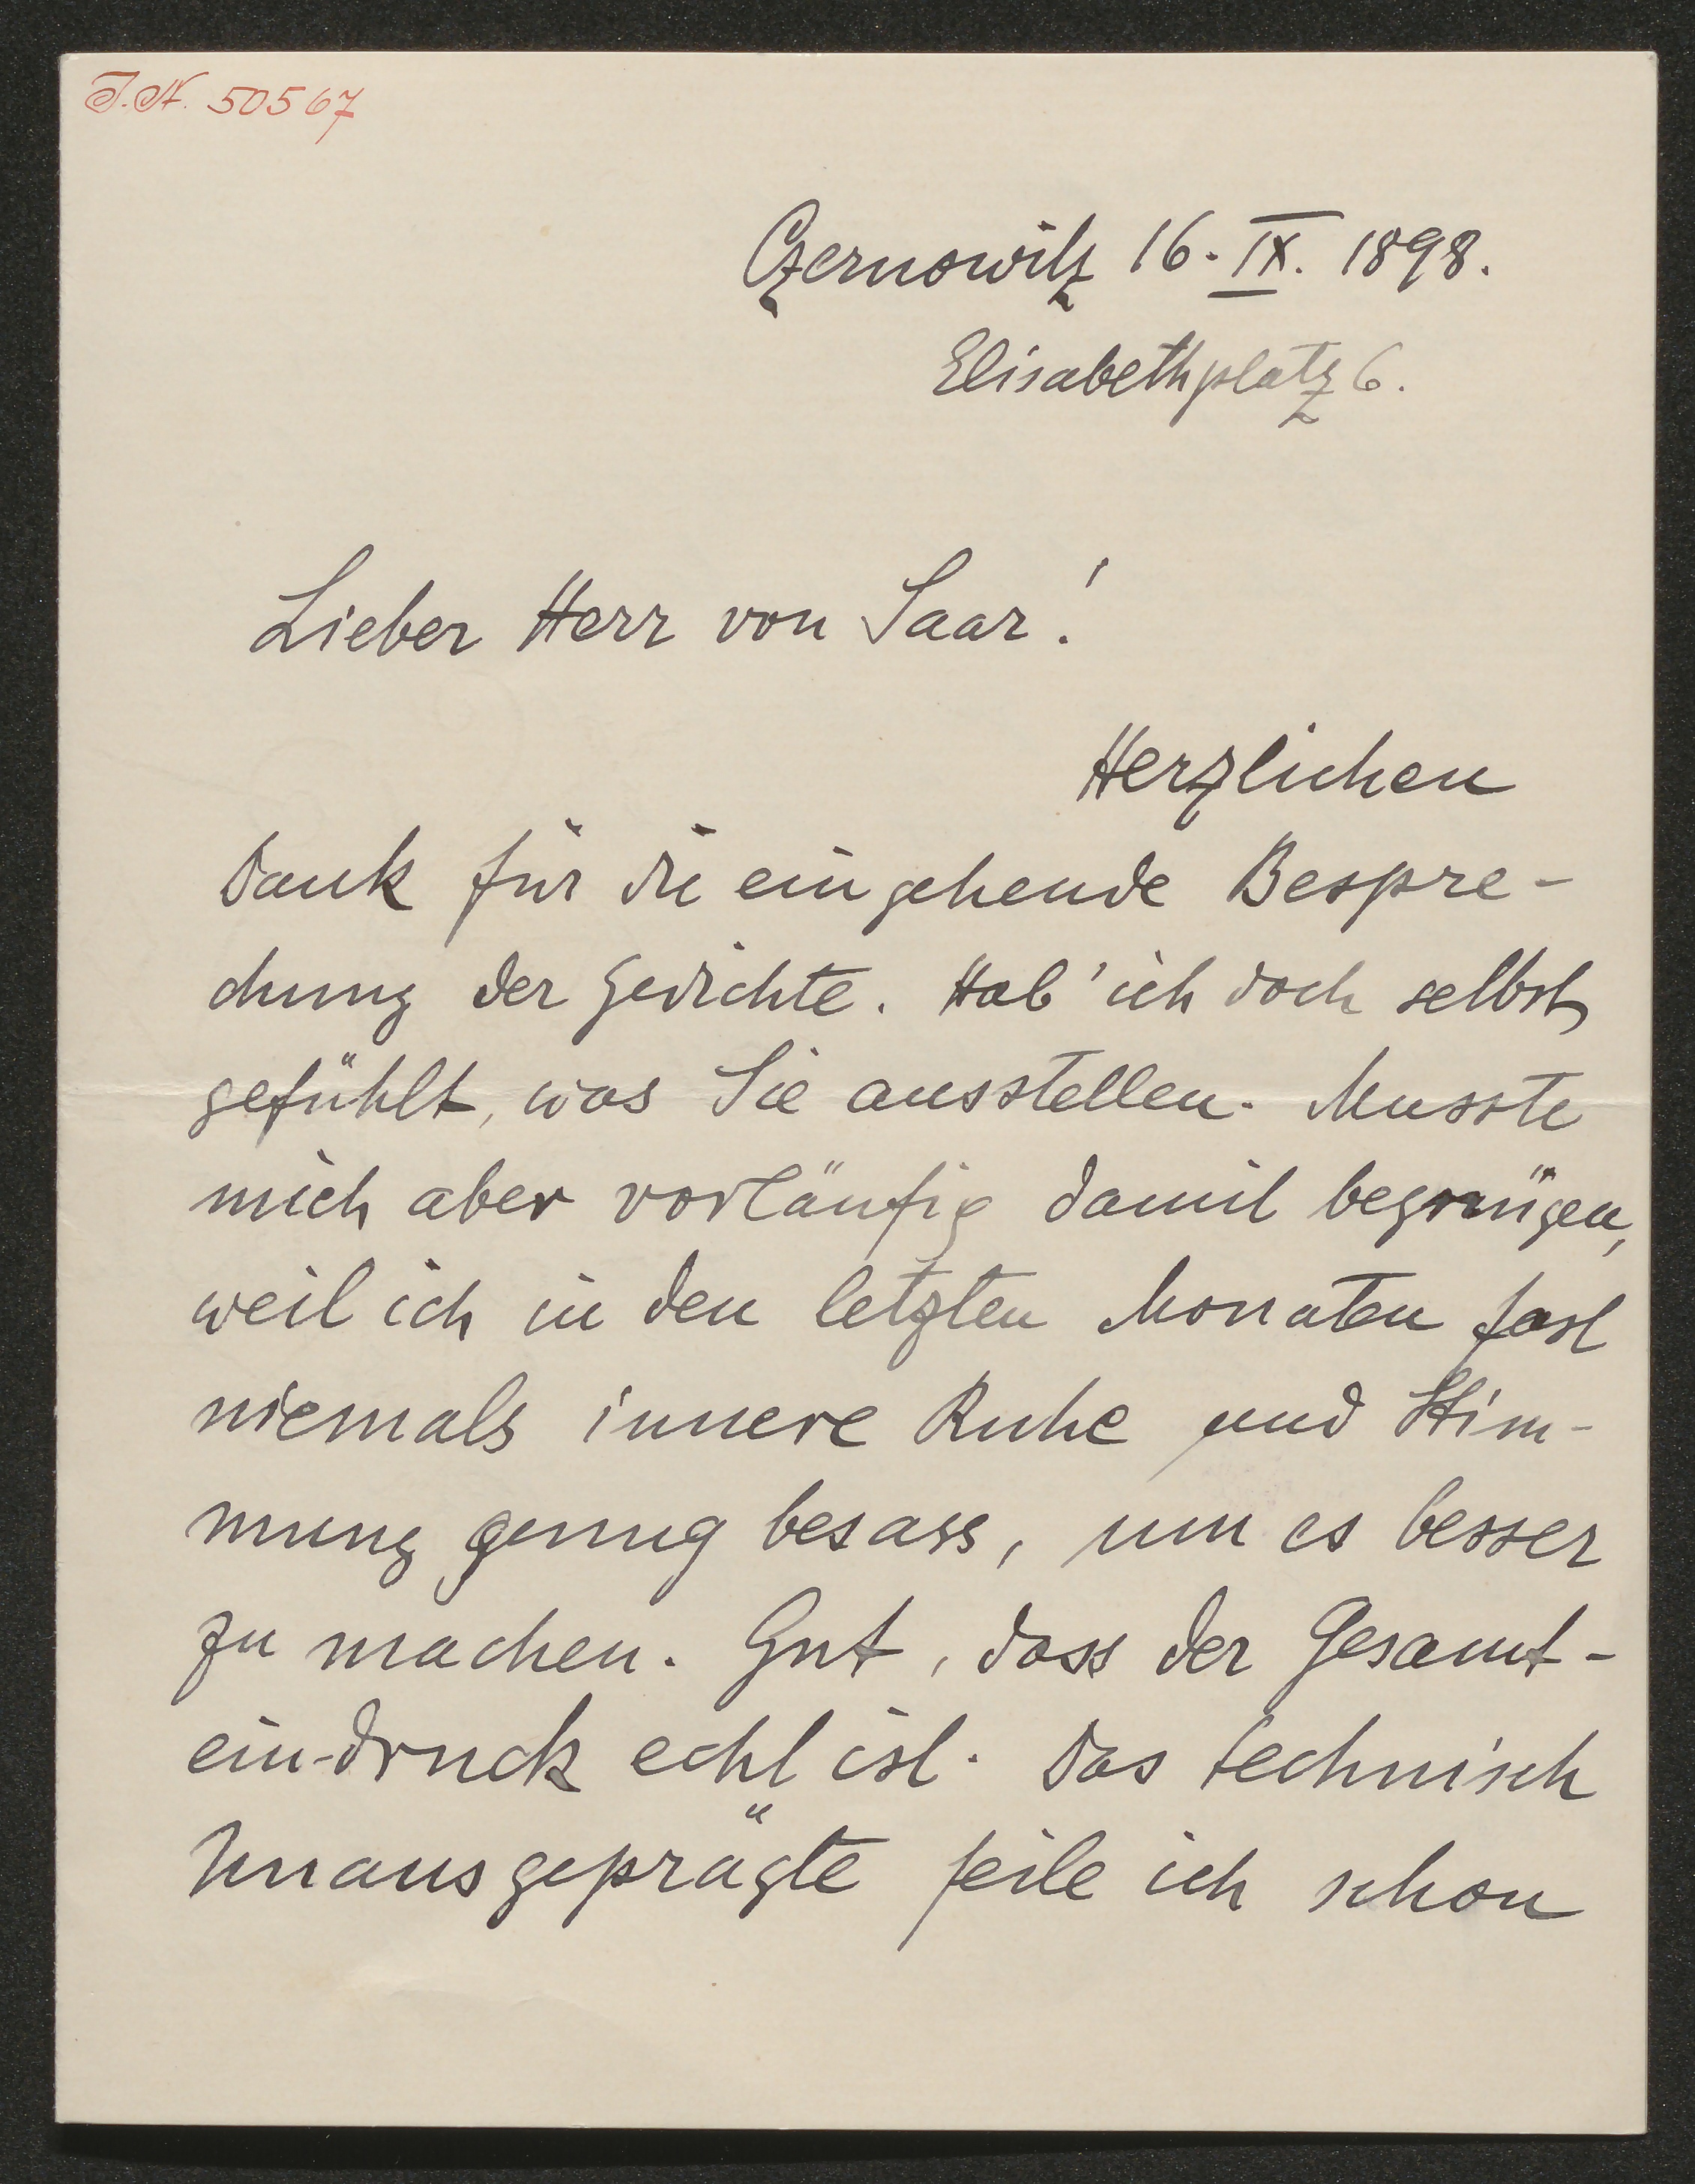 J.N. 50567
Czernowitz 16. IX. 1898.
Elisabethplatz 6.
Lieber Herr von Saar!
Herzlichen
Dank für die eingehende Bespre-
chung der Gedichte. Hab' ich doch selbst
gefühlt, was Sie ausstellen. Musste
mich aber vorläufig damit begnügen,
weil ich in den letzten Monaten fast
niemals innere Ruhe und Stim-
mung genug besass, um es besser
zu machen. Gut, dass der Gesamt-
ein-druck echt ist. Das technisch
Unausgeprägte feile ich schon